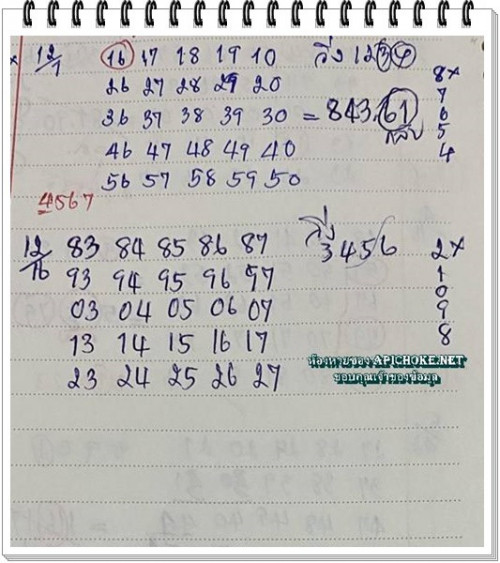 x 12/1 16 17 18 19 10 วิ่ง 1234
26 27 28 29 20 8x
36 37 38 39 30 = 843.61 7
กลับ 6
46 47 48 49 40 5
56 57 58 59 50 4
4567
12/16 83 84 85 86 87 วิ่ง 3456 2x
93 94 95 96 97 1
03 04 05 06 07 0
13 14 15 16 17 9
23 24 25 26 27 8
ห้องหวยซอง APICHOKE.NET
ขอบคุณเจ้าของข้อมูล